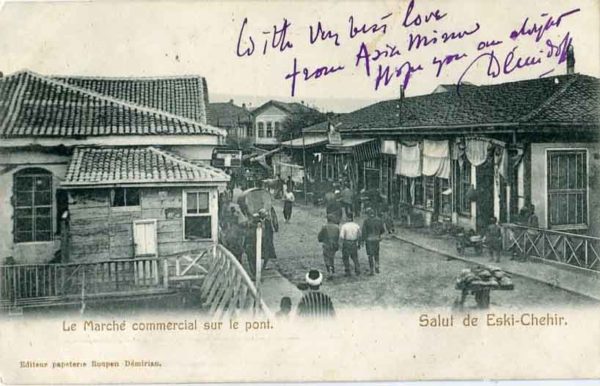 With very best love
from Asia Minor
Hope you are alright
Le Marché commercial sur le pont.
Salut de Eski-Chehir.
Editeur papeterie Roupen Démirian.